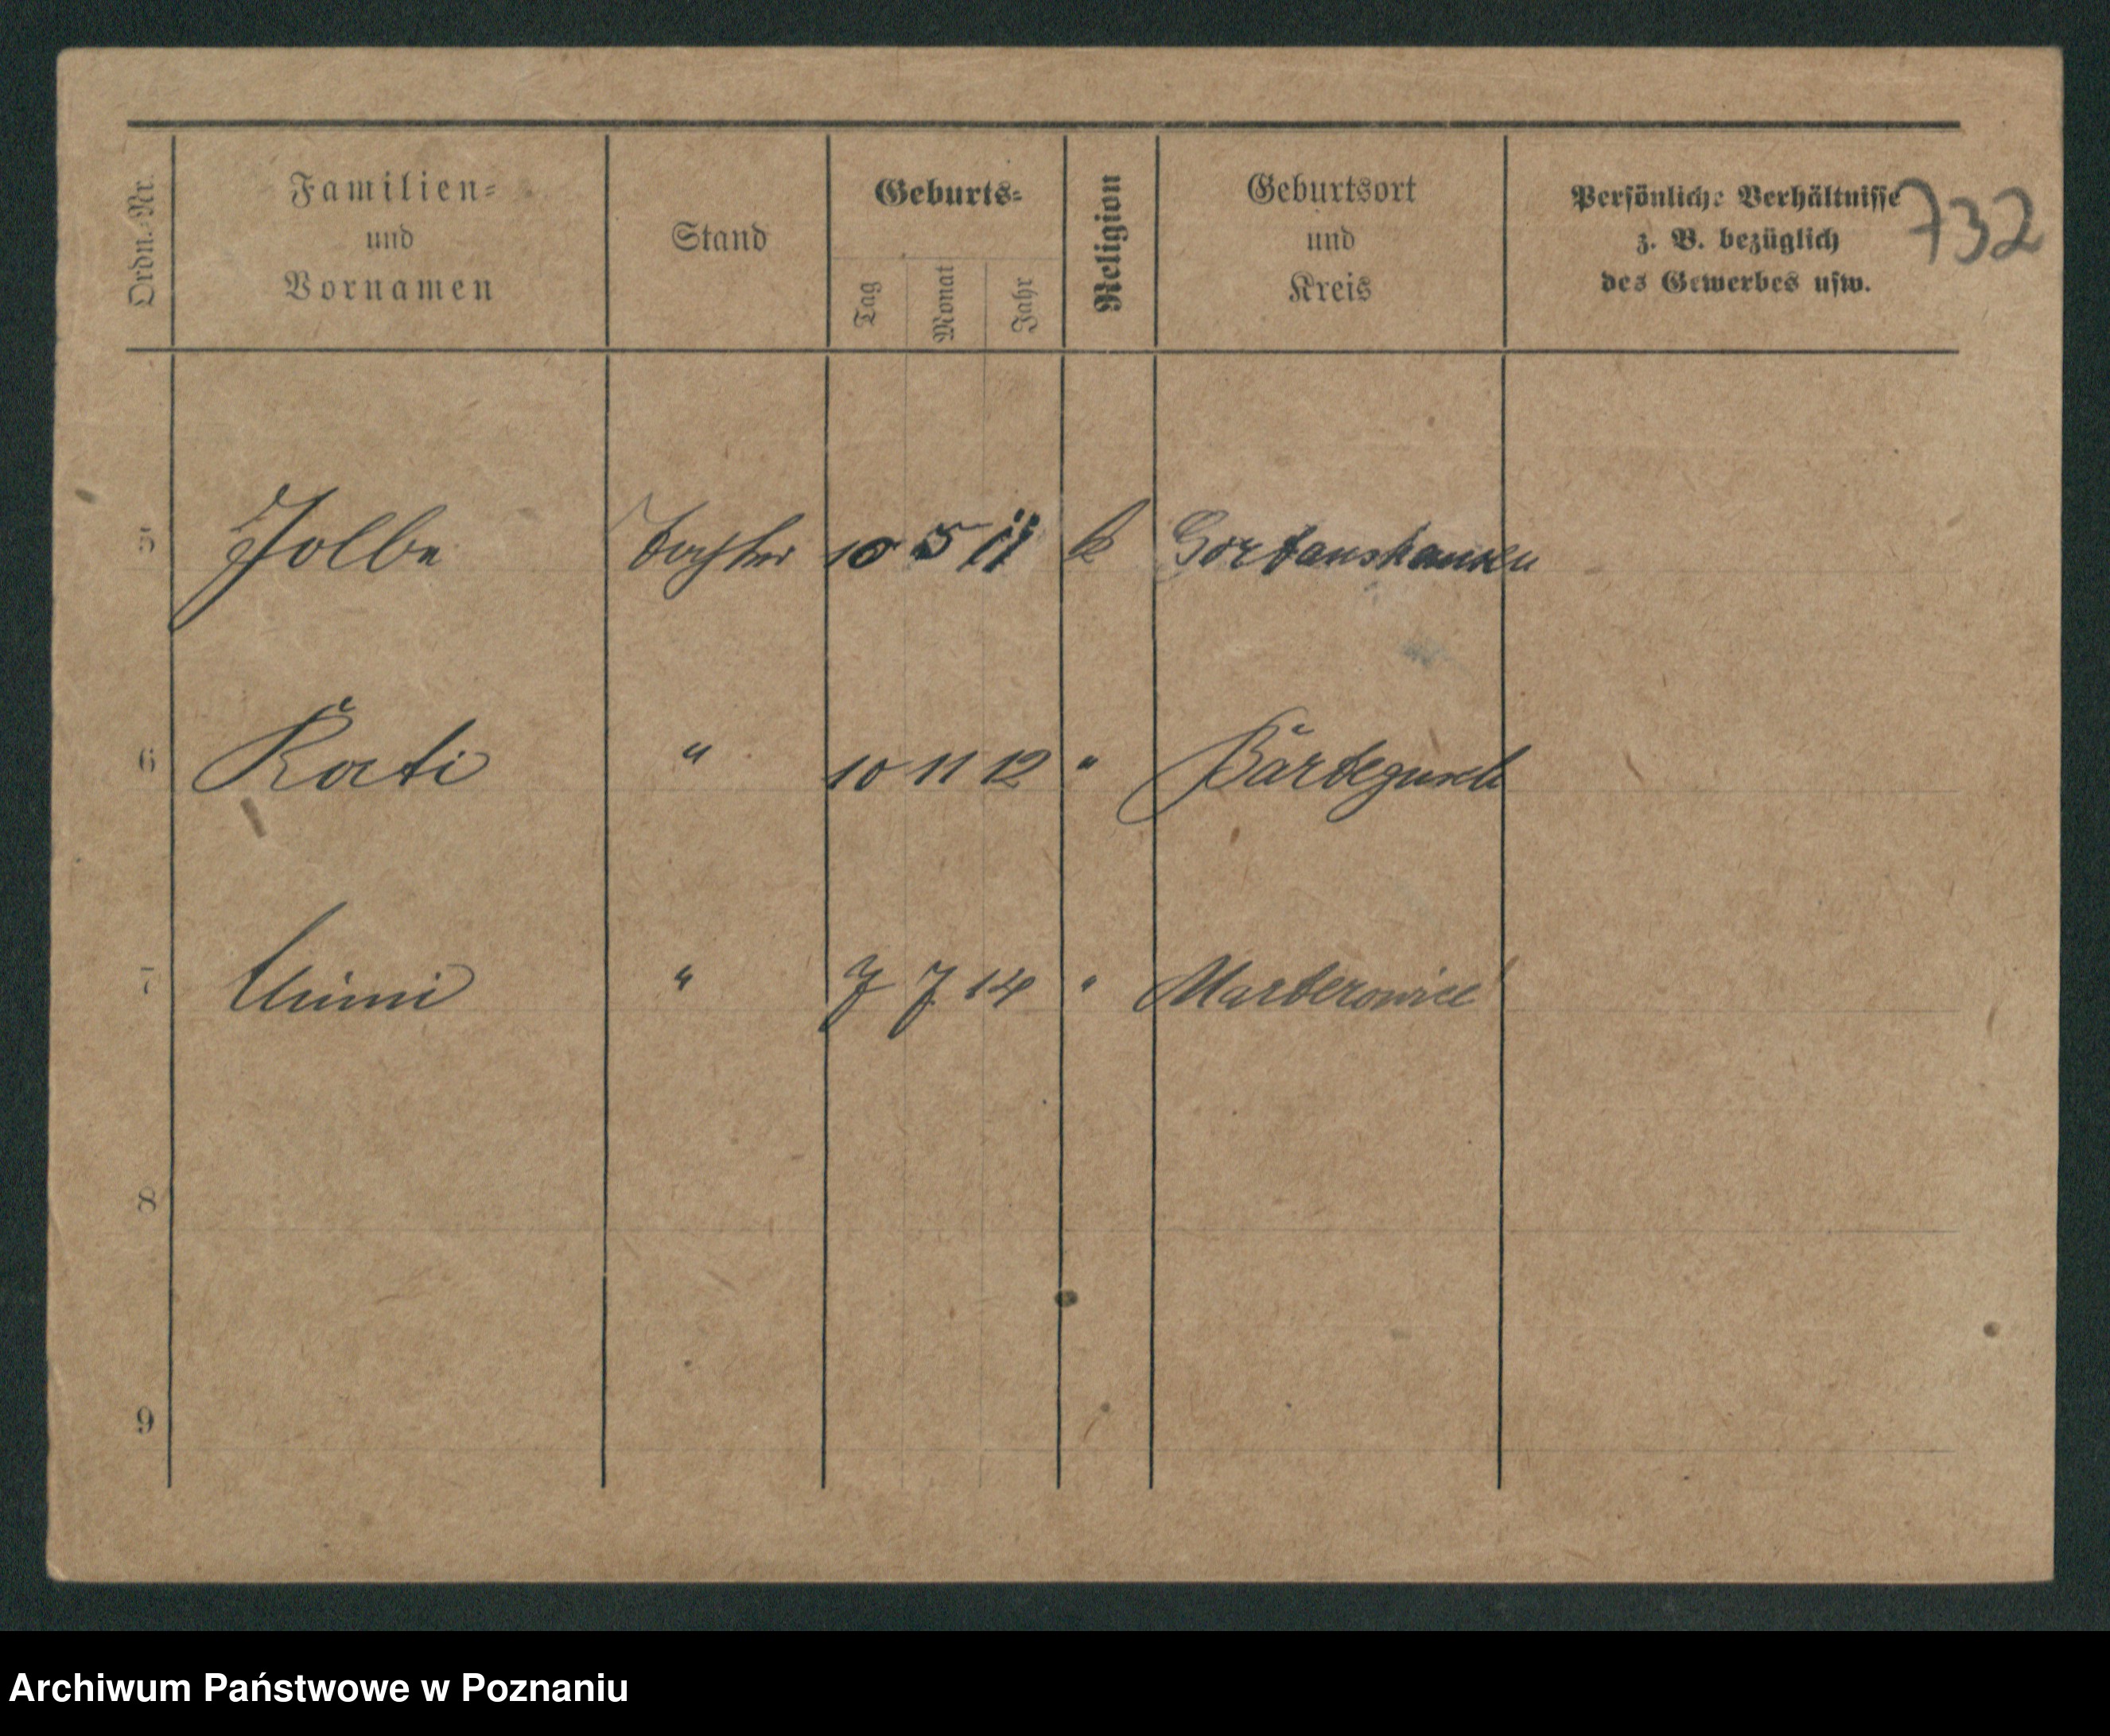 732
Ordn.-Nr.
Familien-
und
Vornamen
Stand
Geburts-
Tag
Monat
Jahr
Religion
Geburtsort
und
Kreis
Persönliche Verhältnisse
z. B. bezüglich
des Gewerbes usw.
5 Jolbe Tochter 10 5 11 k
6 Kati " 10 11 12 "
7 Mimi " 7 7 14 "
8
9
Archiwum Państwowe w Poznaniu